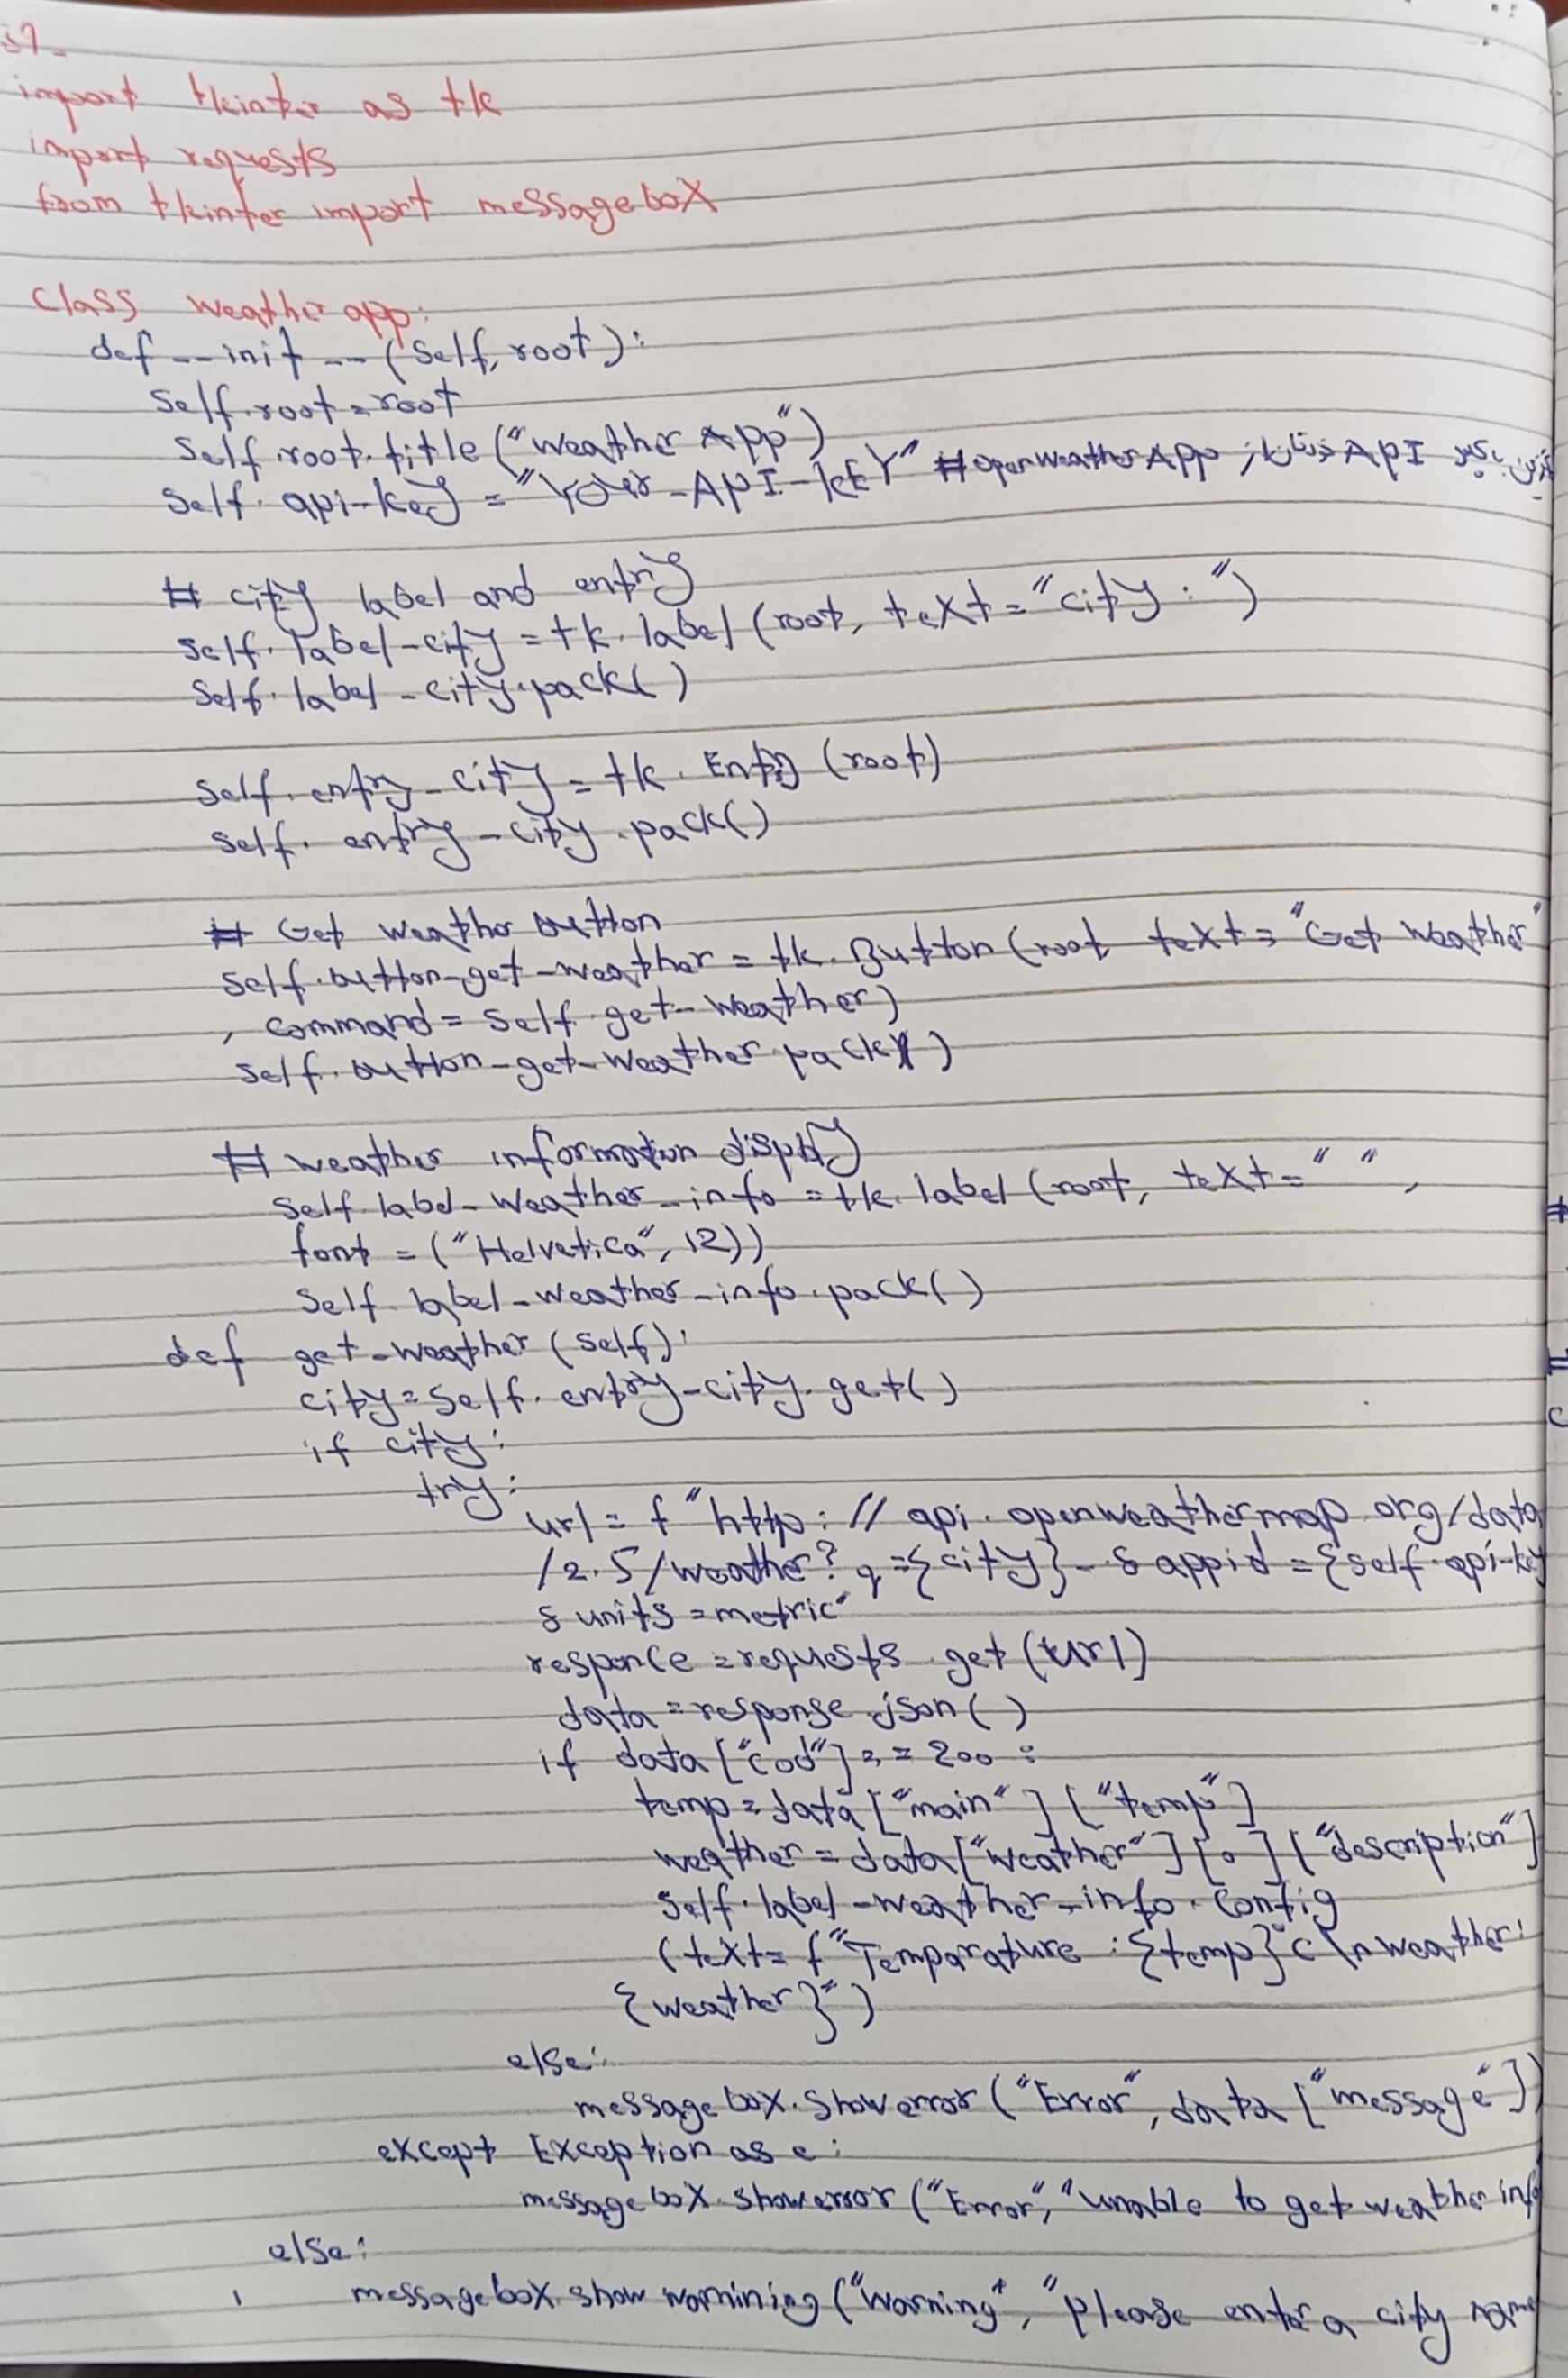 37-
import tkinter as tk
import requests
from tkinter import messagebox
class weather app:
def __init__(self, root):
self.root = root
self.root.title("weather App")
self.api-key = "YOUr-API-kEY" # openweatherApp از API خودتان بگیر
# city label and entry
self.label-city = tk.label(root, text="city:")
self.label-city.pack()
self.entry-city = tk.Entry(root)
self.entry-city.pack()
# Get weather button
self.button-get-weather = tk.Button(root, text="Get weather"
, command = self.get-weather)
self.button-get-weather.pack()
# weather information display
self.label-weather-info = tk.label(root, text=" ",
font = ("Helvetica", 12))
self.label-weather-info.pack()
def get-weather(self):
city = self.entry-city.get()
if city:
try:
url = f"http://api.openweathermap.org/data
/2.5/weather?q={city}-&appid={self.api-key
&units=metric"
responce = requests.get(url)
data = response.json()
if data["cod"] == 200:
temp = data["main"]["temp"]
weather = data["weather"][0]["description"]
self.label-weather-info.config
(text= f"Temparature: {temp}°c\nweather:
{weather}")
else:
messagebox.showerror("Error", data["message"])
except Exception as e:
messagebox.showerror("Error", "unable to get weather info
else:
messagebox.show wornining("Worning", "please enter a city name